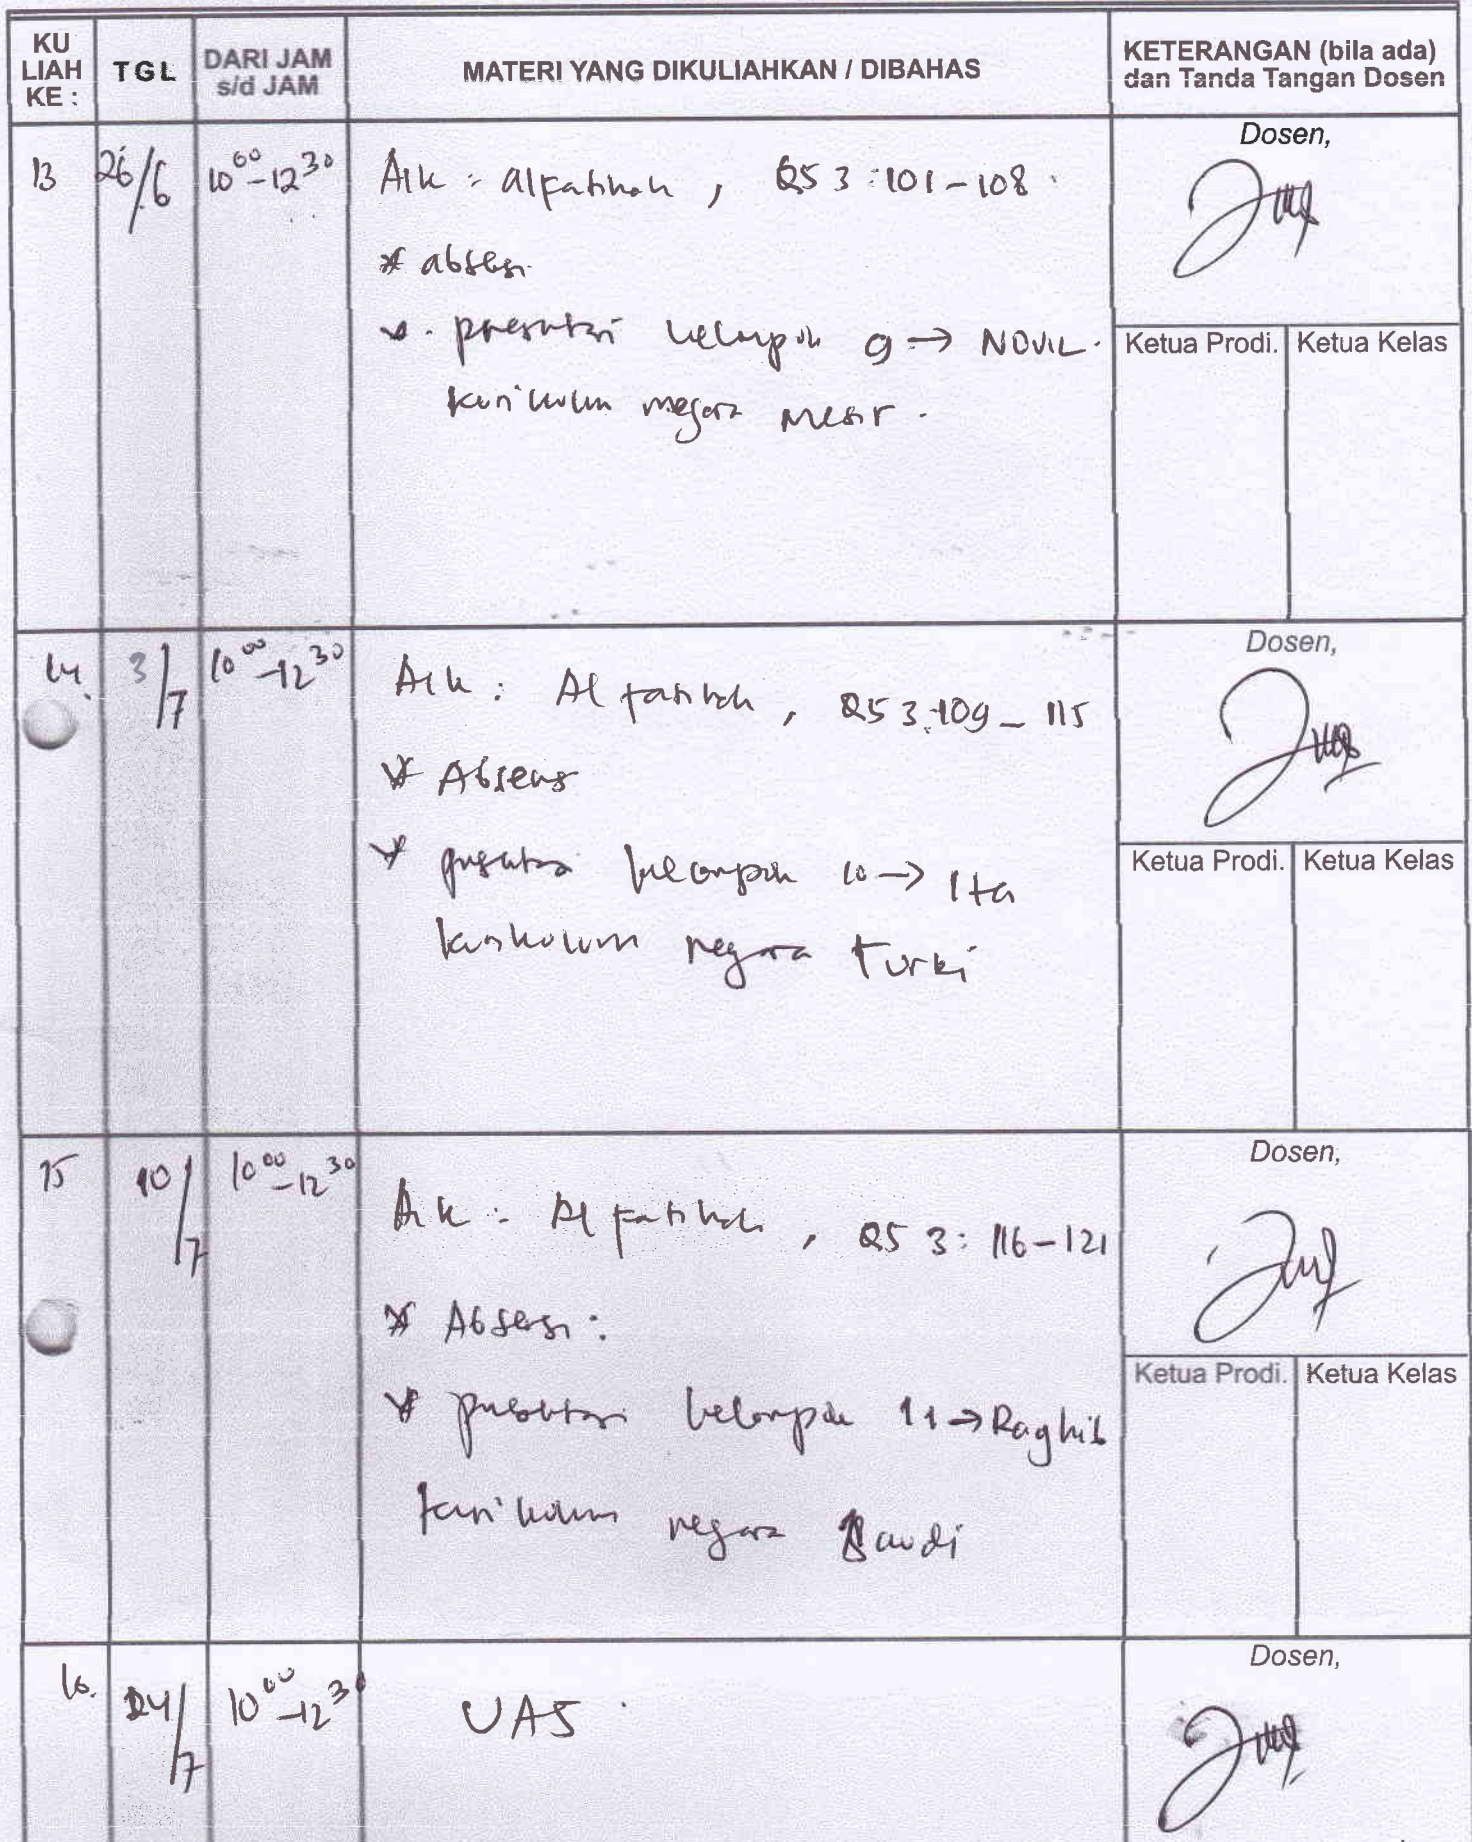 KU LIAH KE : TGL DARI JAM s/d JAM MATERI YANG DIKULIAHKAN / DIBAHAS KETERANGAN (bila ada) dan Tanda Tangan Dosen
13 26/6 10⁰⁰-12³⁰ AIK : alfatihah , QS 3:101-108 . Dosen,
* absensi
* . presentasi kelompok 9 → NOVIL .
kurikulum negara mesir .
Ketua Prodi. Ketua Kelas
14. 3/7 10⁰⁰-12³⁰ AIK : Al fatihah , QS 3:109-115 Dosen,
* Absensi
* presentasi kelompok 10 → Ita
kurikulum negara Turki
Ketua Prodi. Ketua Kelas
15 10/7 10⁰⁰-12³⁰ AIK : Al fatihah , QS 3: 116-121 Dosen,
* Absensi :
* presentasi kelompok 11 → Raghib
kurikulum negara Saudi
Ketua Prodi. Ketua Kelas
16. 24/7 10⁰⁰-12³⁰ UAS . Dosen,